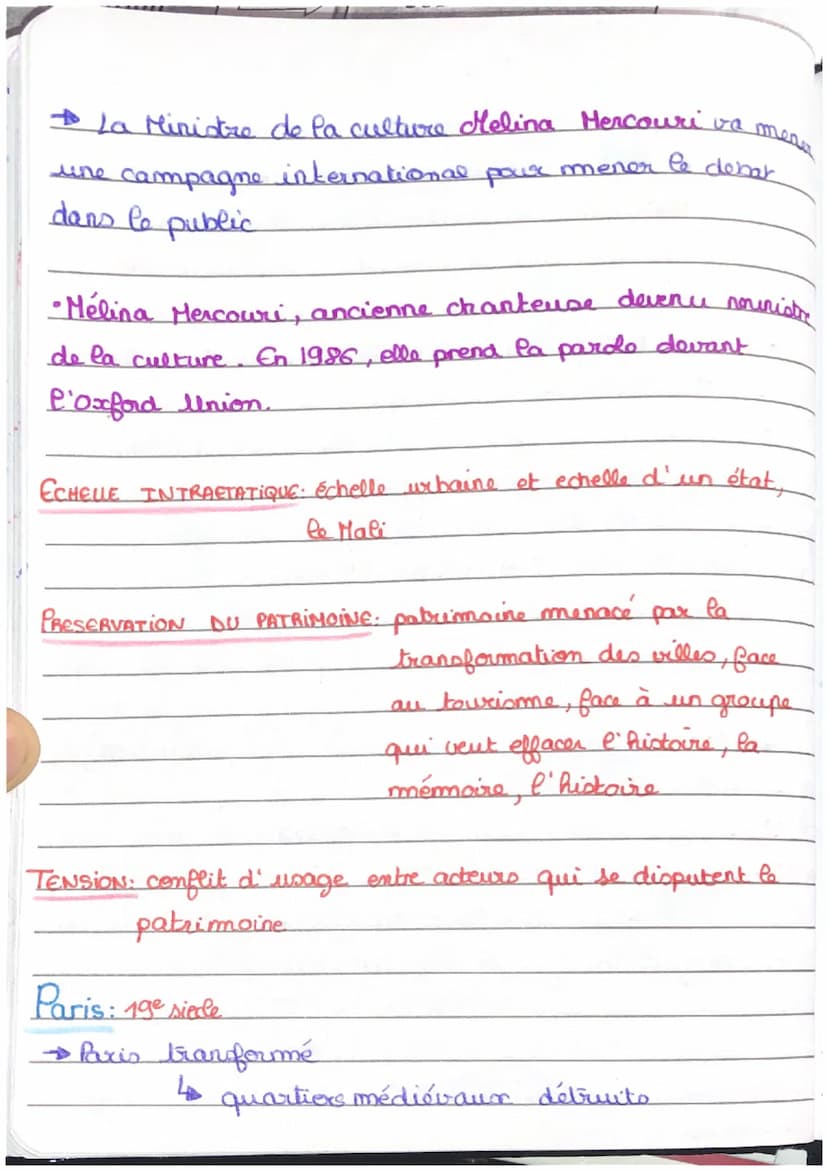 → La Ministre de la culture Melina Mercouri va mener
une campagne international pour mener le debat
dans le public
• Mélina Mercouri, ancienne chanteuse devenu mninistre
de la culture. En 1986, elle prend la parole devant
l'Oxford Union.
ECHELLE INTRAETATIQUE: échelle urbaine et echelle d'un état,
le Mali
PRESERVATION DU PATRIMOINE: patrimoine menacé par la
transformation des villes, face
au tourisme, face à un groupe
qui veut effacer l'histoire, la
mémmoire, l'histoire
TENSION: conflit d'usage entre acteurs qui se disputent le
patrimoine
Paris: 19e siecle
→ Paris transformé
↳ quartiers médiévaux détruits